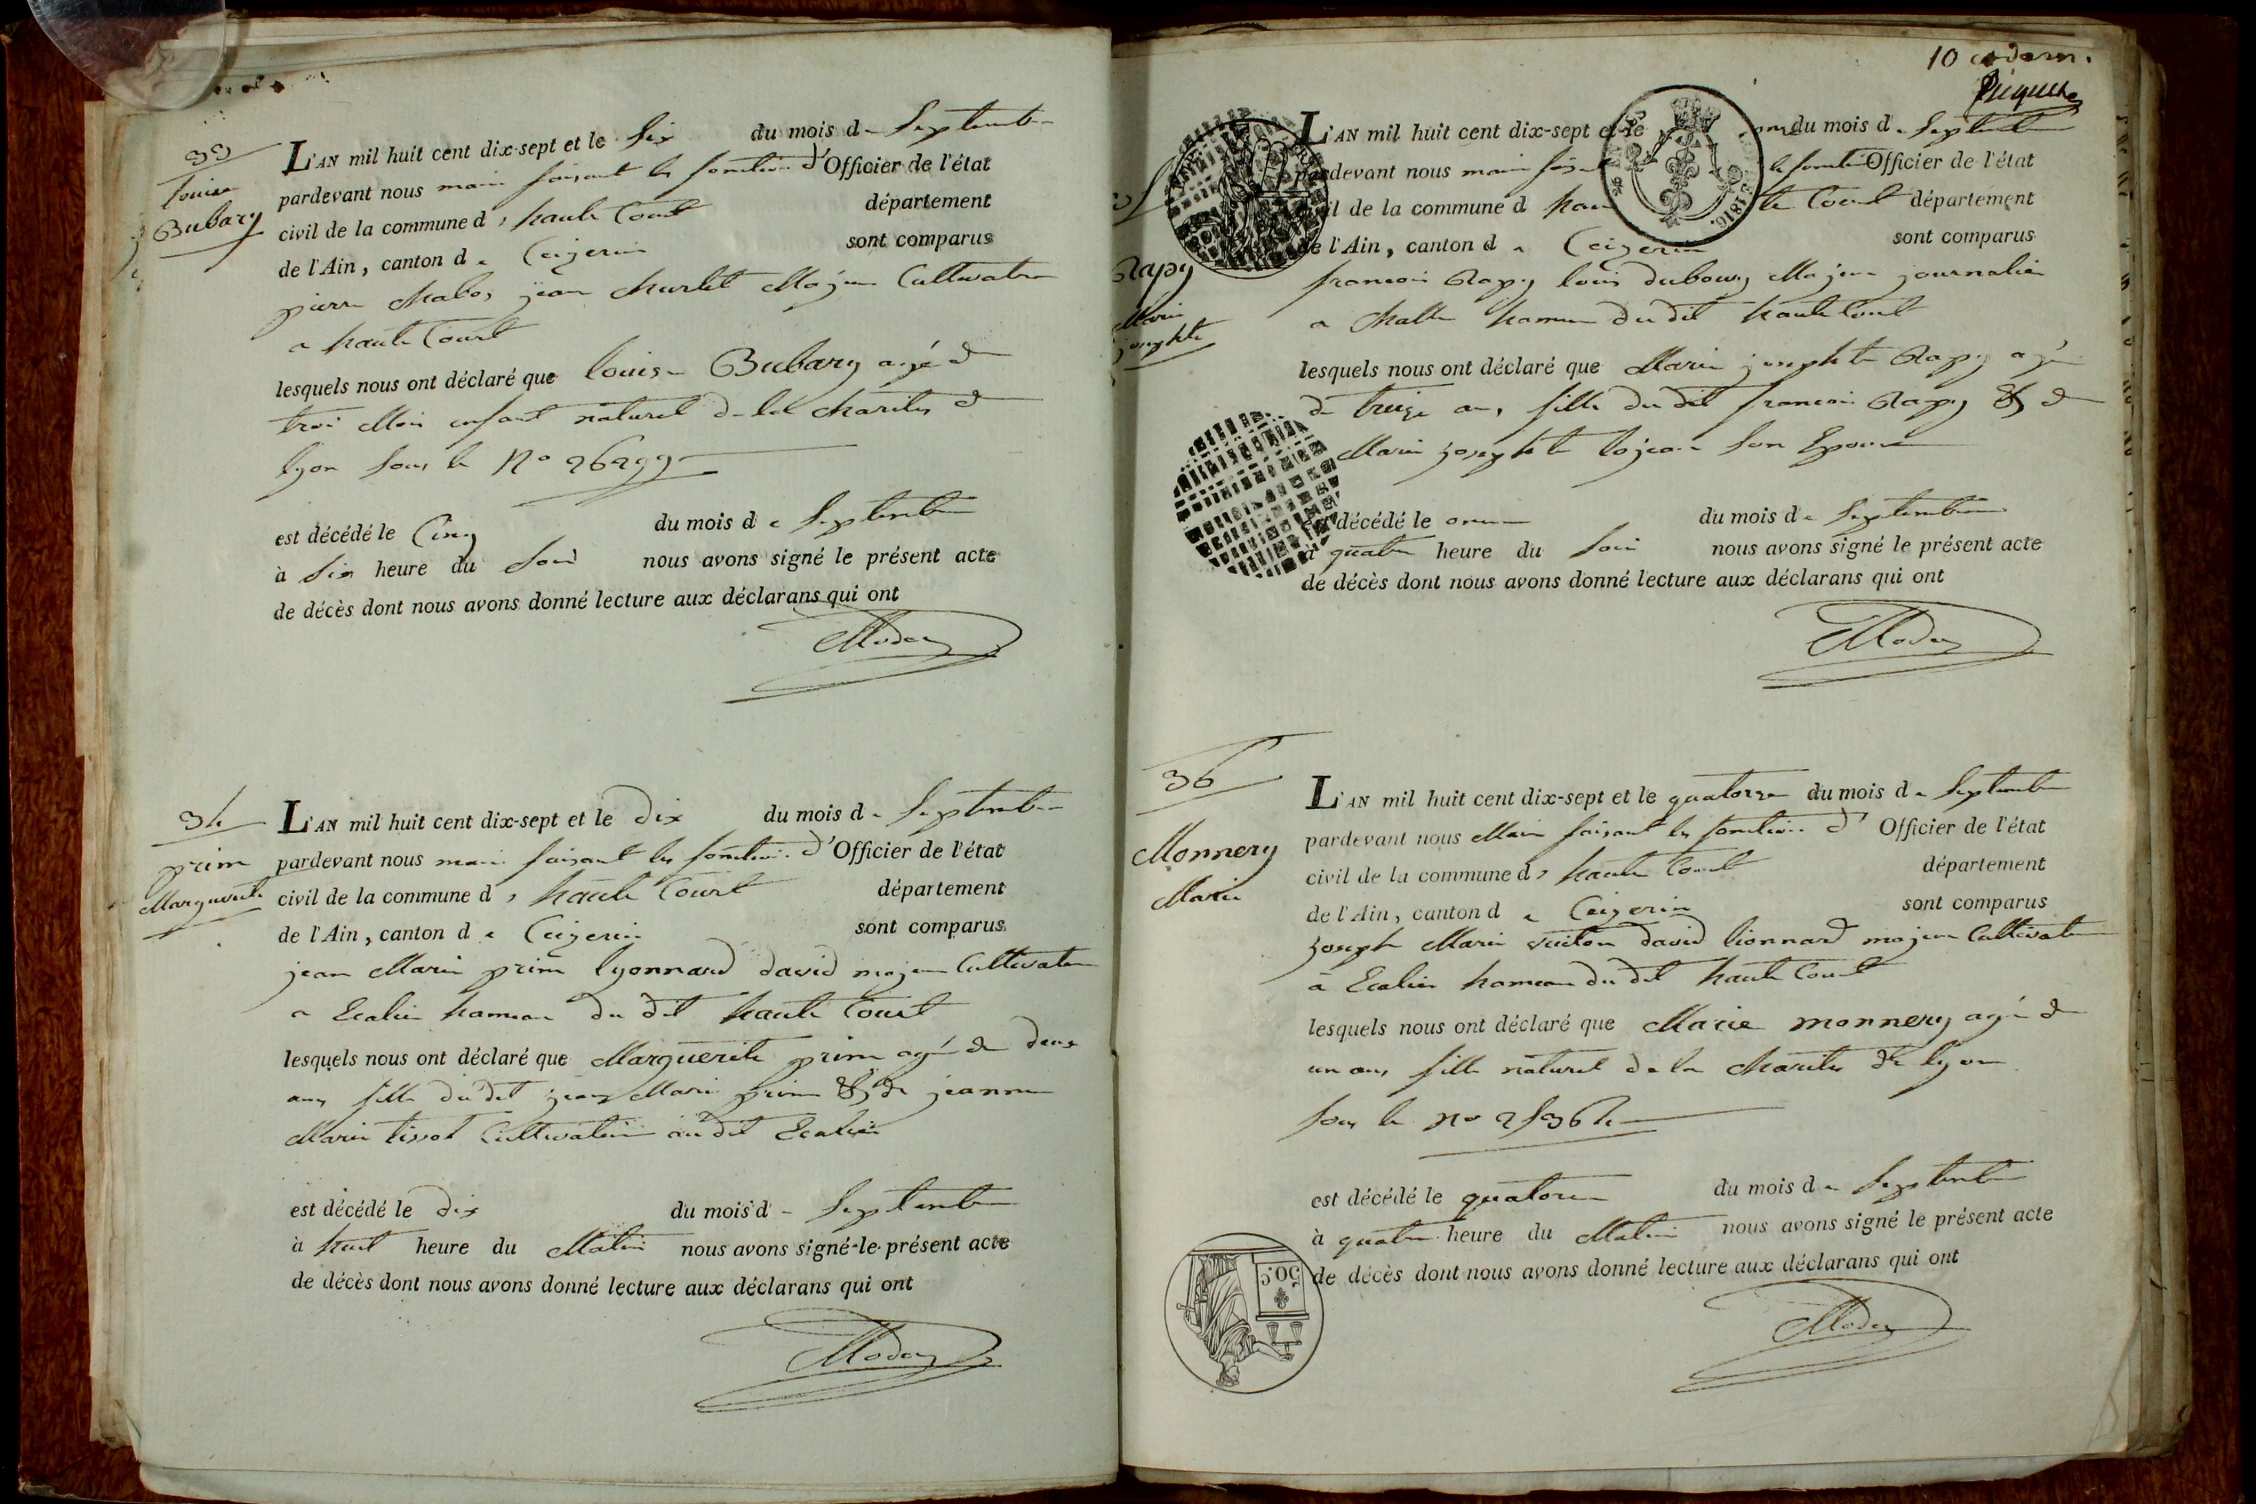 33
Louise
Bubary
L'AN mil huit cent dix-sept et le Six du mois de Septembre
pardevant nous maire faisant les fonction d'Officier de l'état
civil de la commune d haute Court département
de l'Ain, canton de Ceizeria sont comparus
pierre Chabos jean Murlet Majeur Cultivateur
a haute Court
lesquels nous ont déclaré que louise Bubary agé de
trois Mois enfant naturel de la charités de
lyon sous le No 26299
est décédé le Cinq du mois de Septembre
à Six heure du Soir nous avons signé le présent acte
de décès dont nous avons donné lecture aux déclarans qui ont
34
prim
Marguerite
L'AN mil huit cent dix-sept et le dix du mois de Septembre
pardevant nous maire faisant les fonction d'Officier de l'état
civil de la commune d haute Court département
de l'Ain, canton de Ceizeria sont comparus
jean Marie prim lyonnard david majeur Cultivateur
a Ecalier hameau du dit haute Court
lesquels nous ont déclaré que Marguerite prim agé de deux
ans fille du dit jean Marie prim & de jeanne
Marie tissot Cultivateur au dit Ecalier
est décédé le dix du mois de Septembre
à huit heure du Matin nous avons signé le présent acte
de décès dont nous avons donné lecture aux déclarans qui ont
10
Rapy
Marie
josephte
L'AN mil huit cent dix-sept et le du mois de Septembre
pardevant nous maire les fonction Officier de l'état
civil de la commune d haute Court département
de l'Ain, canton de Ceizeria sont comparus
francois Rapy louis dubourg Majeur journalier
a hameau du dit haute Court
lesquels nous ont déclaré que Marie josephte Rapy agé
de treize ans fille du dit francois Rapy & de
Marie josephte son Epouse
est décédé le onze du mois de Septembre
à quatre heure du Soir nous avons signé le présent acte
de décès dont nous avons donné lecture aux déclarans qui ont
36
Monnery
Marie
L'AN mil huit cent dix-sept et le quatorze du mois de Septembre
pardevant nous Maire faisant les fonction d' Officier de l'état
civil de la commune d haute Court département
de l'Ain, canton de Ceizeria sont comparus
joseph Marie david lionnard majeur Cultivateur
à Ecalier hameau du dit haute Court
lesquels nous ont déclaré que Marie monnery agé de
un ans fille naturel de la charités de lyon
sous le No
est décédé le quatorze du mois de Septembre
à quatre heure du Matin nous avons signé le présent acte
de décès dont nous avons donné lecture aux déclarans qui ont
50.c